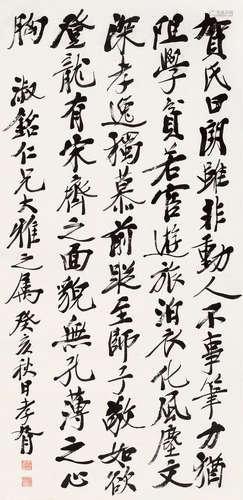 賀氏曰雖非動人不事筆力猶
阻學貧若宦遊旅泊衣化風塵文
深孝逸獨慕前蹤至師子敬如欲
登龍有宋齊之面貌無孔薄之心
胸 淑銘仁兄大雅之屬癸亥秋日孝胥